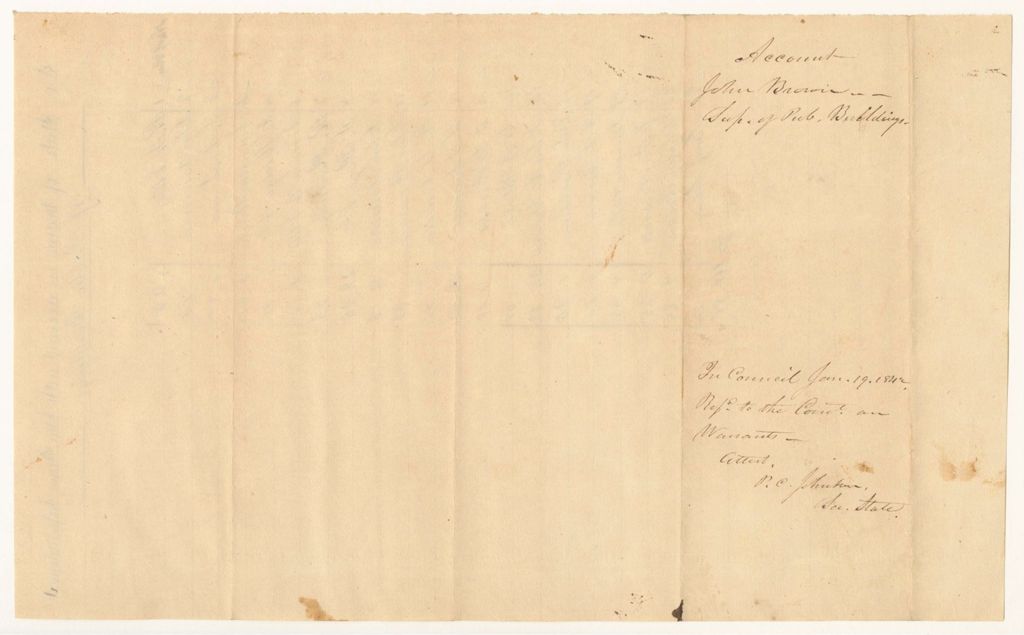 Account
John Brown - -
Sup. of Pub. Buildings.
In Council Jan. 19. 1842.
Refd. to the Comt. on
Warrants -
Attest,
P. C. Johnson,
Sec. State.